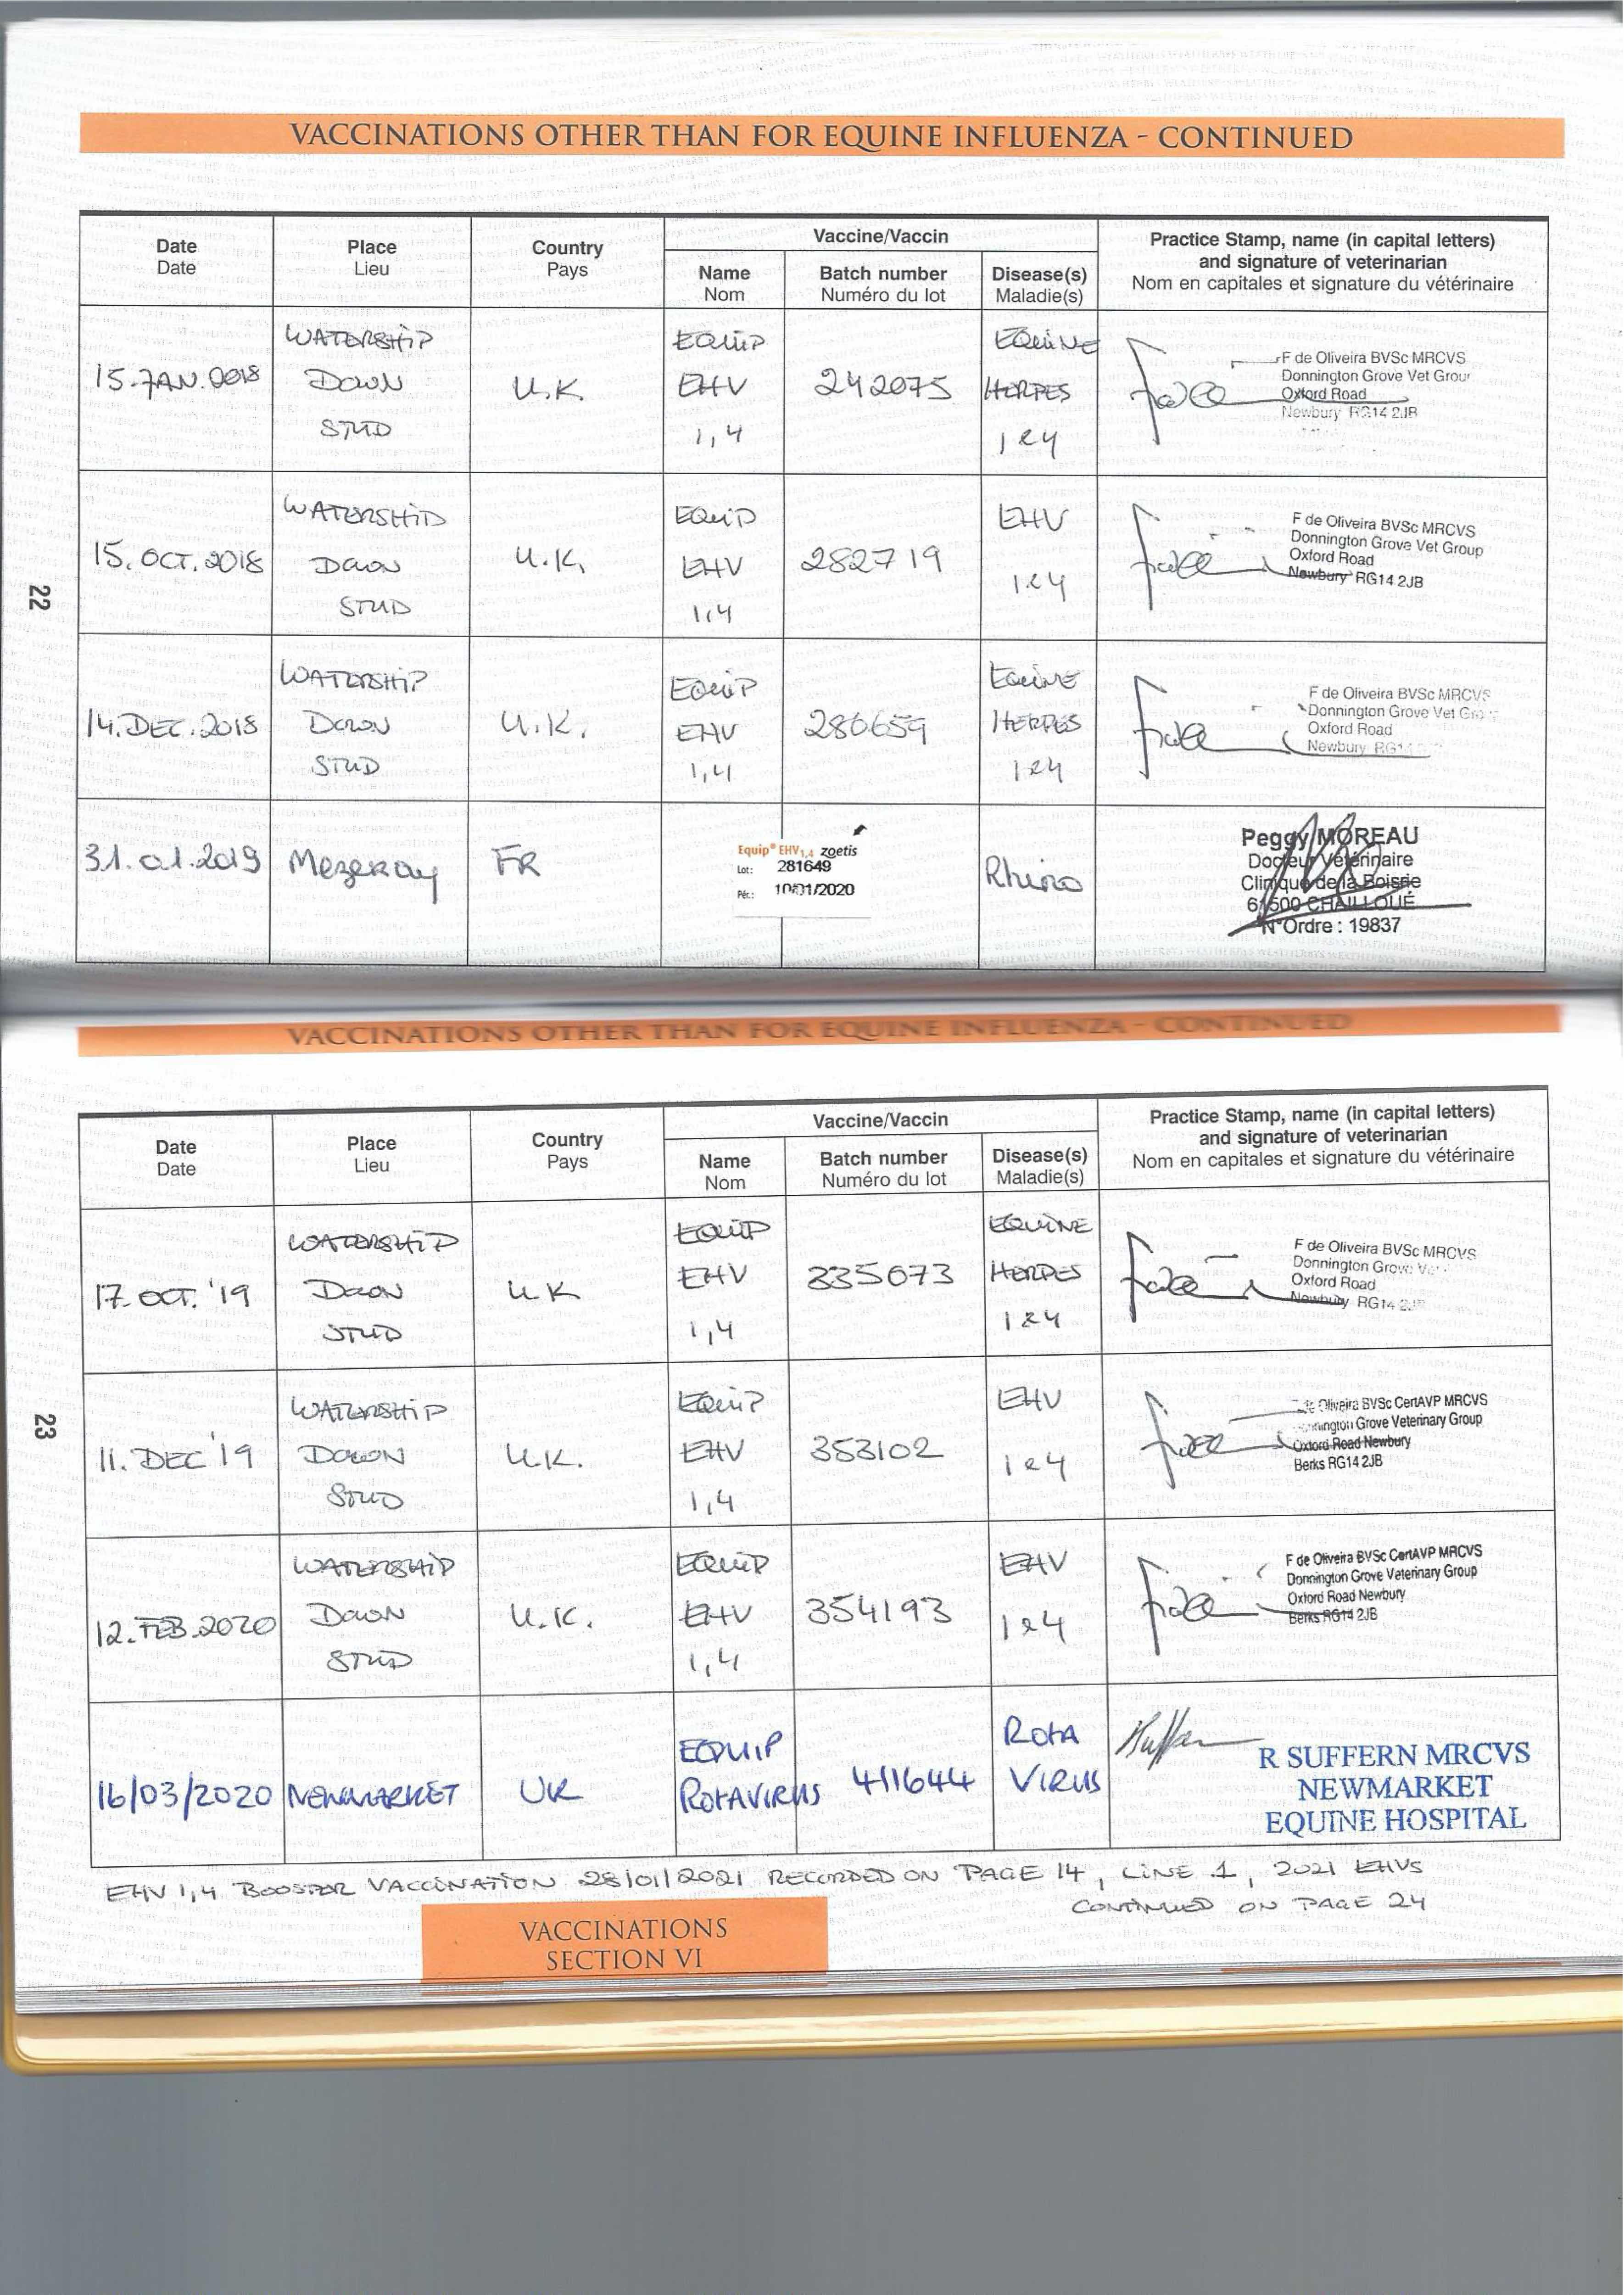 VACCINATIONS OTHER THAN FOR EQUINE INFLUENZA - CONTINUED
Date
Date
Place
Lieu
Country
Pays
Vaccine/Vaccin
Name
Nom
Batch number
Numéro du lot
Disease(s)
Maladie(s)
Practice Stamp, name (in capital letters)
and signature of veterinarian
Nom en capitales et signature du vétérinaire
15.JAN.2018
WATERSHIP
DOWN
STUD
U.K.
EQUIP
EHV
1,4
242075
EQUINE
HERPES
1&4
F de Oliveira BVSc MRCVS
Donnington Grove Vet Grour
Oxford Road
Newbury RG14 2JB
15.OCT.2018
WATERSHIP
DOWN
STUD
U.K.
EQUIP
EHV
1,4
282719
EHV
1&4
F de Oliveira BVSc MRCVS
Donnington Grove Vet Group
Oxford Road
Newbury RG14 2JB
14.DEC.2018
WATERSHIP
DOWN
STUD
U.K.
EQUIP
EHV
1,4
280659
EQUINE
HERPES
1&4
F de Oliveira BVSc MRCVS
Donnington Grove Vet
Oxford Road
Newbury
31.01.2019
Mezeray
FR
Equip® EHV1,4 zoetis
Lot: 281649
Pér.: 10/01/2020
Rhino
Peggy MOREAU
Docteur Vétérinaire
Clinique de la Boisrie
61500 CHAILLOUÉ
N°Ordre : 19837
22
VACCINATIONS OTHER THAN FOR EQUINE INFLUENZA - CONTINUED
Date
Date
Place
Lieu
Country
Pays
Vaccine/Vaccin
Name
Nom
Batch number
Numéro du lot
Disease(s)
Maladie(s)
Practice Stamp, name (in capital letters)
and signature of veterinarian
Nom en capitales et signature du vétérinaire
17.OCT.'19
WATERSHIP
DOWN
STUD
UK
EQUIP
EHV
1,4
335673
EQUINE
HERPES
1&4
F de Oliveira BVSc MRCVS
Donnington Grove
Oxford Road
Newbury RG14
11.DEC'19
WATERSHIP
DOWN
STUD
U.K.
EQUIP
EHV
1,4
353102
EHV
1&4
Oliveira BVSc CertAVP MRCVS
Grove Veterinary Group
Oxford Road Newbury
Berks RG14 2JB
12.FEB.2020
WATERSHIP
DOWN
STUD
U.K.
EQUIP
EHV
1,4
354193
EHV
1&4
F de Oliveira BVSc CertAVP MRCVS
Donnington Grove Veterinary Group
Oxford Road Newbury
Berks RG14 2JB
16/03/2020
NEWMARKET
UK
EQUIP
ROTAVIRUS
411644
ROTA
VIRUS
R SUFFERN MRCVS
NEWMARKET
EQUINE HOSPITAL
23
EHV 1,4 BOOSTER VACCINATION 28/01/2021 RECORDED ON PAGE 14, LINE 1, 2021 EHVS
CONTINUED ON PAGE 24
VACCINATIONS
SECTION VI